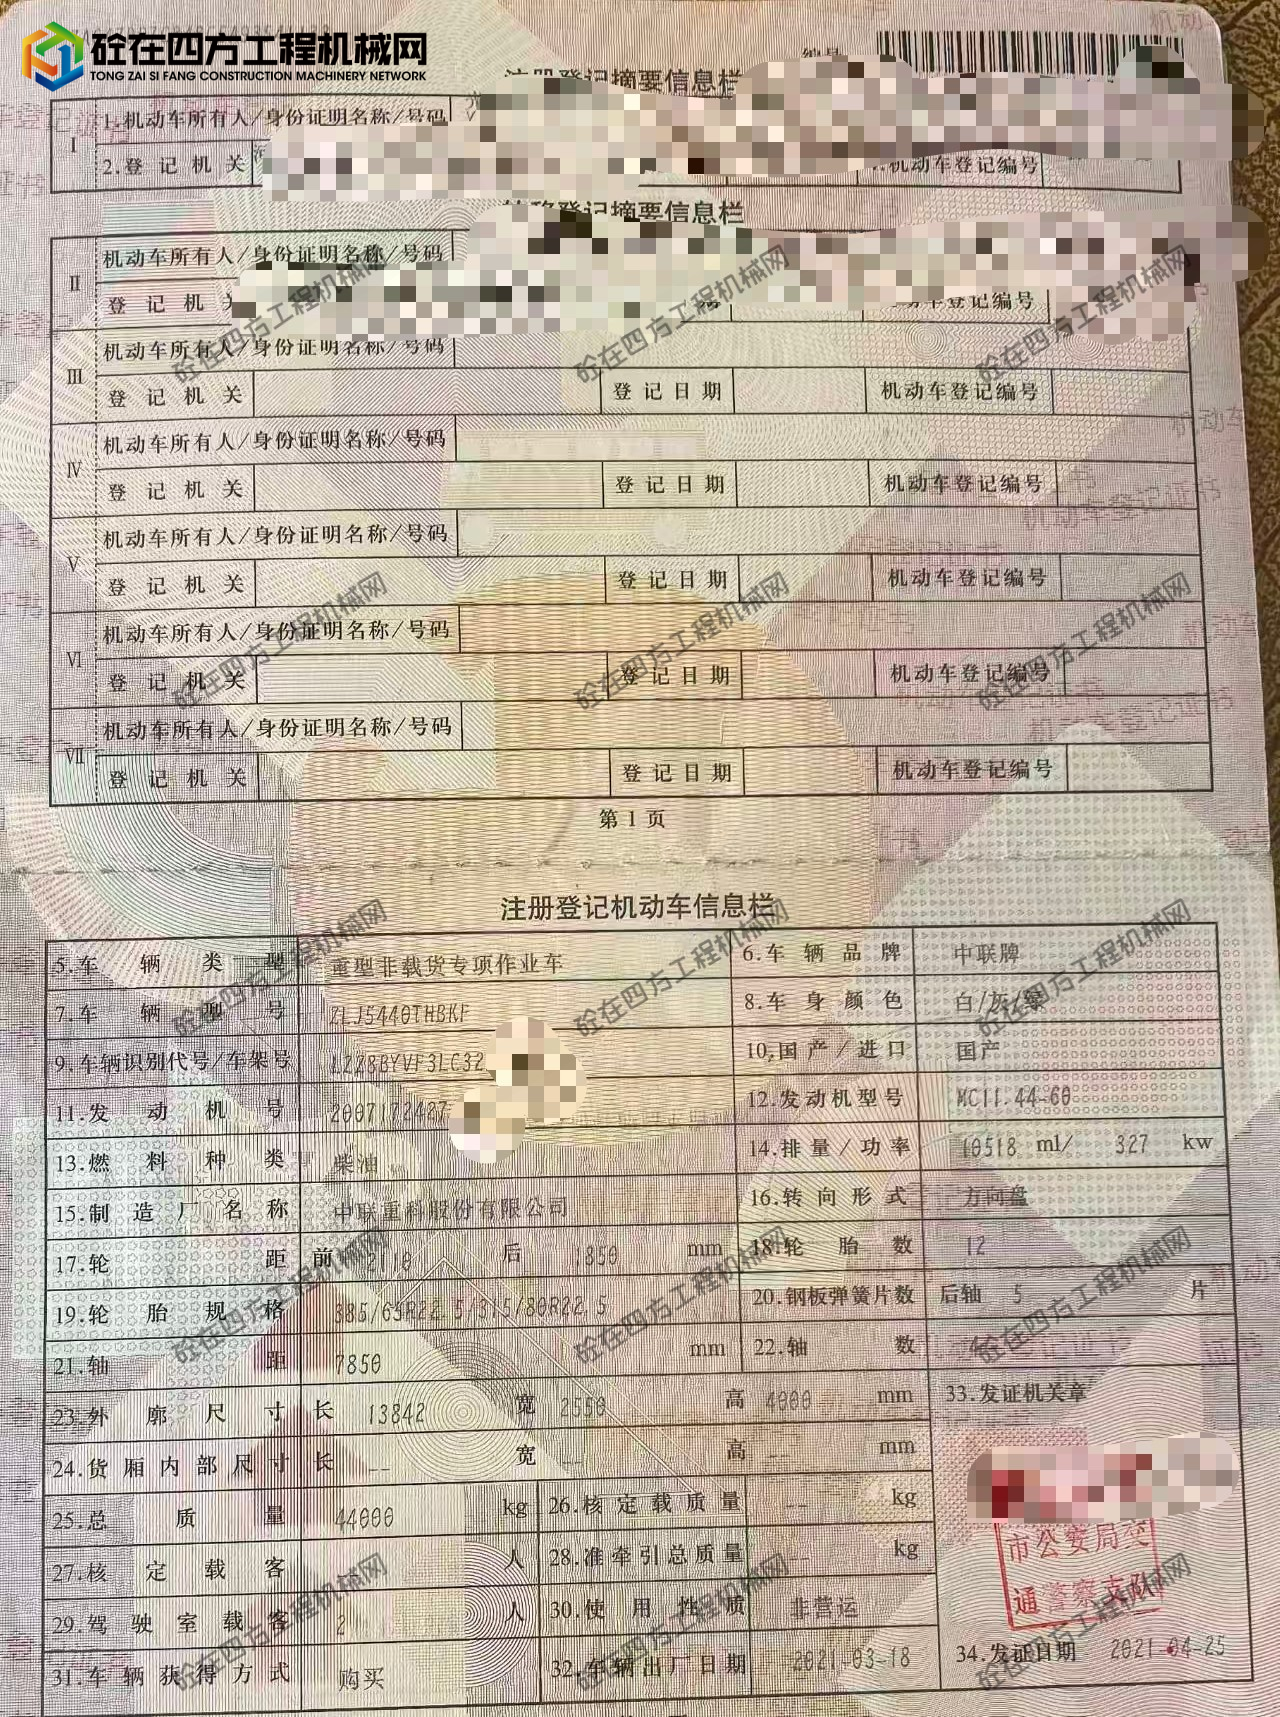 砼在四方工程机械网
TONG ZAI SI FANG CONSTRUCTION MACHINERY NETWORK
注册登记摘要信息栏
I
1.机动车所有人/身份证明名称/号码
2.登记机关
机动车登记编号
转移登记摘要信息栏
II
机动车所有人/身份证明名称/号码
登记机关
机动车登记编号
III
机动车所有人/身份证明名称/号码
登记机关 登记日期 机动车登记编号
IV
机动车所有人/身份证明名称/号码
登记机关 登记日期 机动车登记编号
V
机动车所有人/身份证明名称/号码
登记机关 登记日期 机动车登记编号
VI
机动车所有人/身份证明名称/号码
登记机关 登记日期 机动车登记编号
VII
机动车所有人/身份证明名称/号码
登记机关 登记日期 机动车登记编号
第1页
注册登记机动车信息栏
5.车辆类型 重型非载货专项作业车 6.车辆品牌 中联牌
7.车辆型号 ZLJ5440THBKF 8.车身颜色 白/灰/绿
9.车辆识别代号/车架号 LZZ8BYVF3LC32 10.国产/进口 国产
11.发动机号 2007172427 12.发动机型号 MC11.44-60
13.燃料种类 柴油 14.排量/功率 10518 ml/ 327 kw
15.制造厂名称 中联重科股份有限公司 16.转向形式 方向盘
17.轮距 前 2110 后 1850 mm 18.轮胎数 12
19.轮胎规格 385/65R22.5/315/80R22.5 20.钢板弹簧片数 后轴 5 片
21.轴距 7850 mm 22.轴数
23.外廓尺寸 长 13842 宽 2550 高 4000 mm 33.发证机关章
24.货厢内部尺寸 长 -- 宽 -- 高 -- mm
25.总质量 44000 kg 26.核定载质量 -- kg
27.核定载客 人 28.准牵引总质量 -- kg
市公安局交
通警察支队
29.驾驶室载客 2 人 30.使用性质 非营运
31.车辆获得方式 购买 32.车辆出厂日期 2021-03-18 34.发证日期 2021-04-25
砼在四方工程机械网